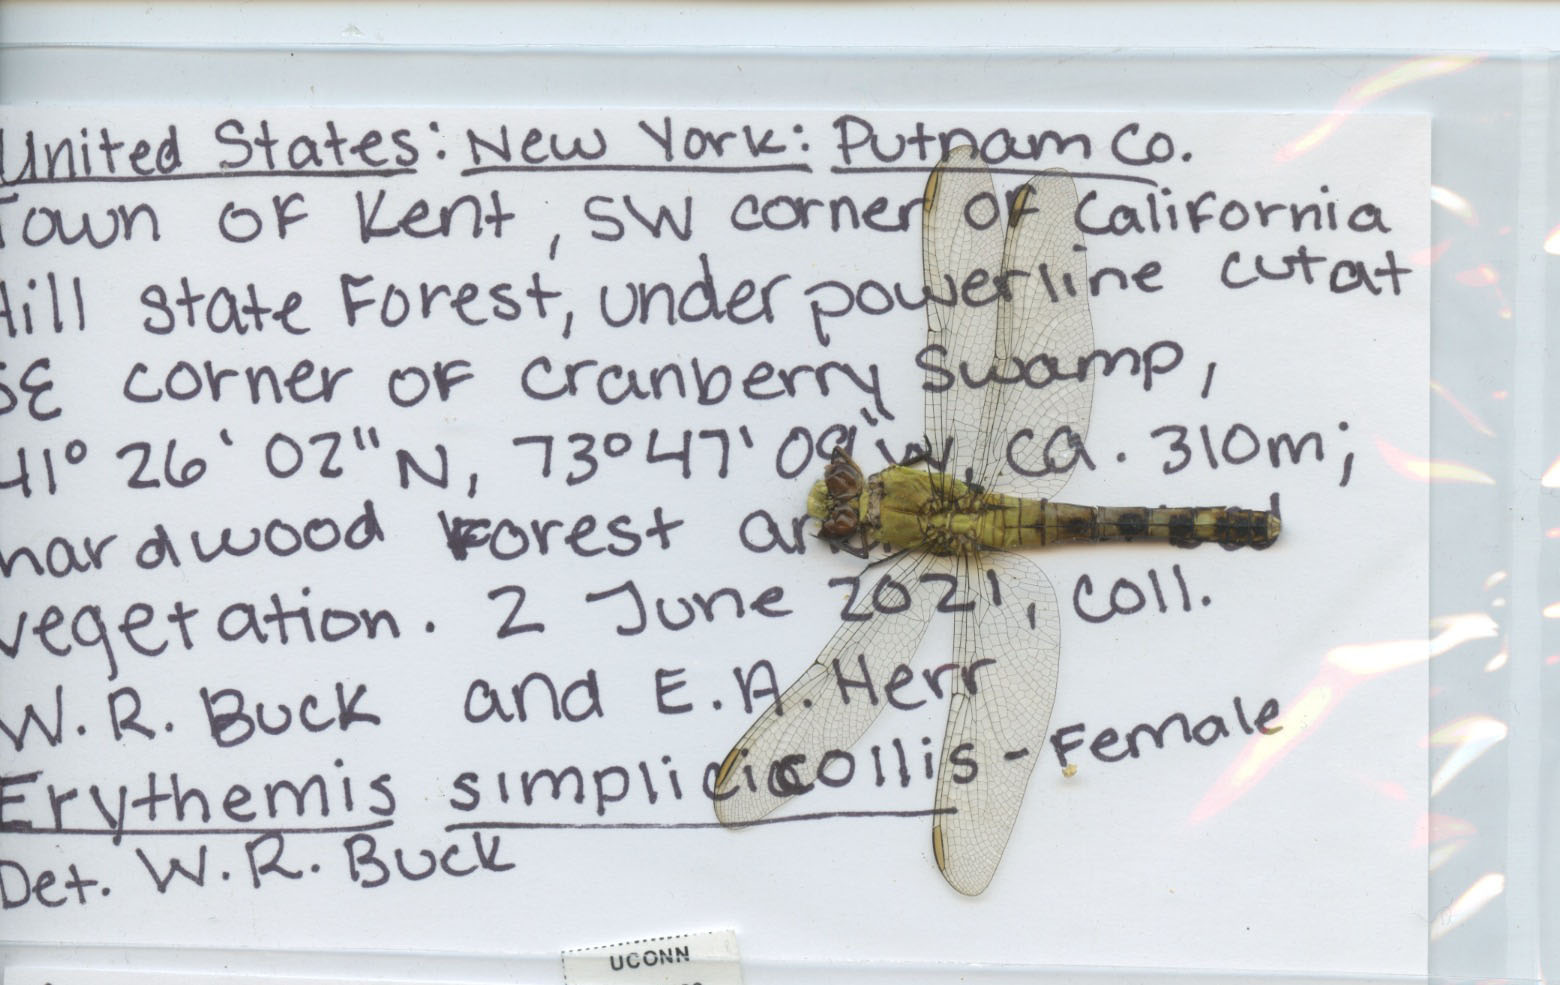 United States: New York: Putnam Co.
Town of Kent, SW corner of California
Hill State Forest, under powerline cut at
SE corner of Cranberry Swamp,
41° 26' 02" N, 73° 47' 09" W, ca. 310m;
hardwood forest
vegetation. 2 June 2021, coll.
W.R. Buck and E.A. Herr
Erythemis simplicicollis - Female
Det. W.R. Buck
UCONN